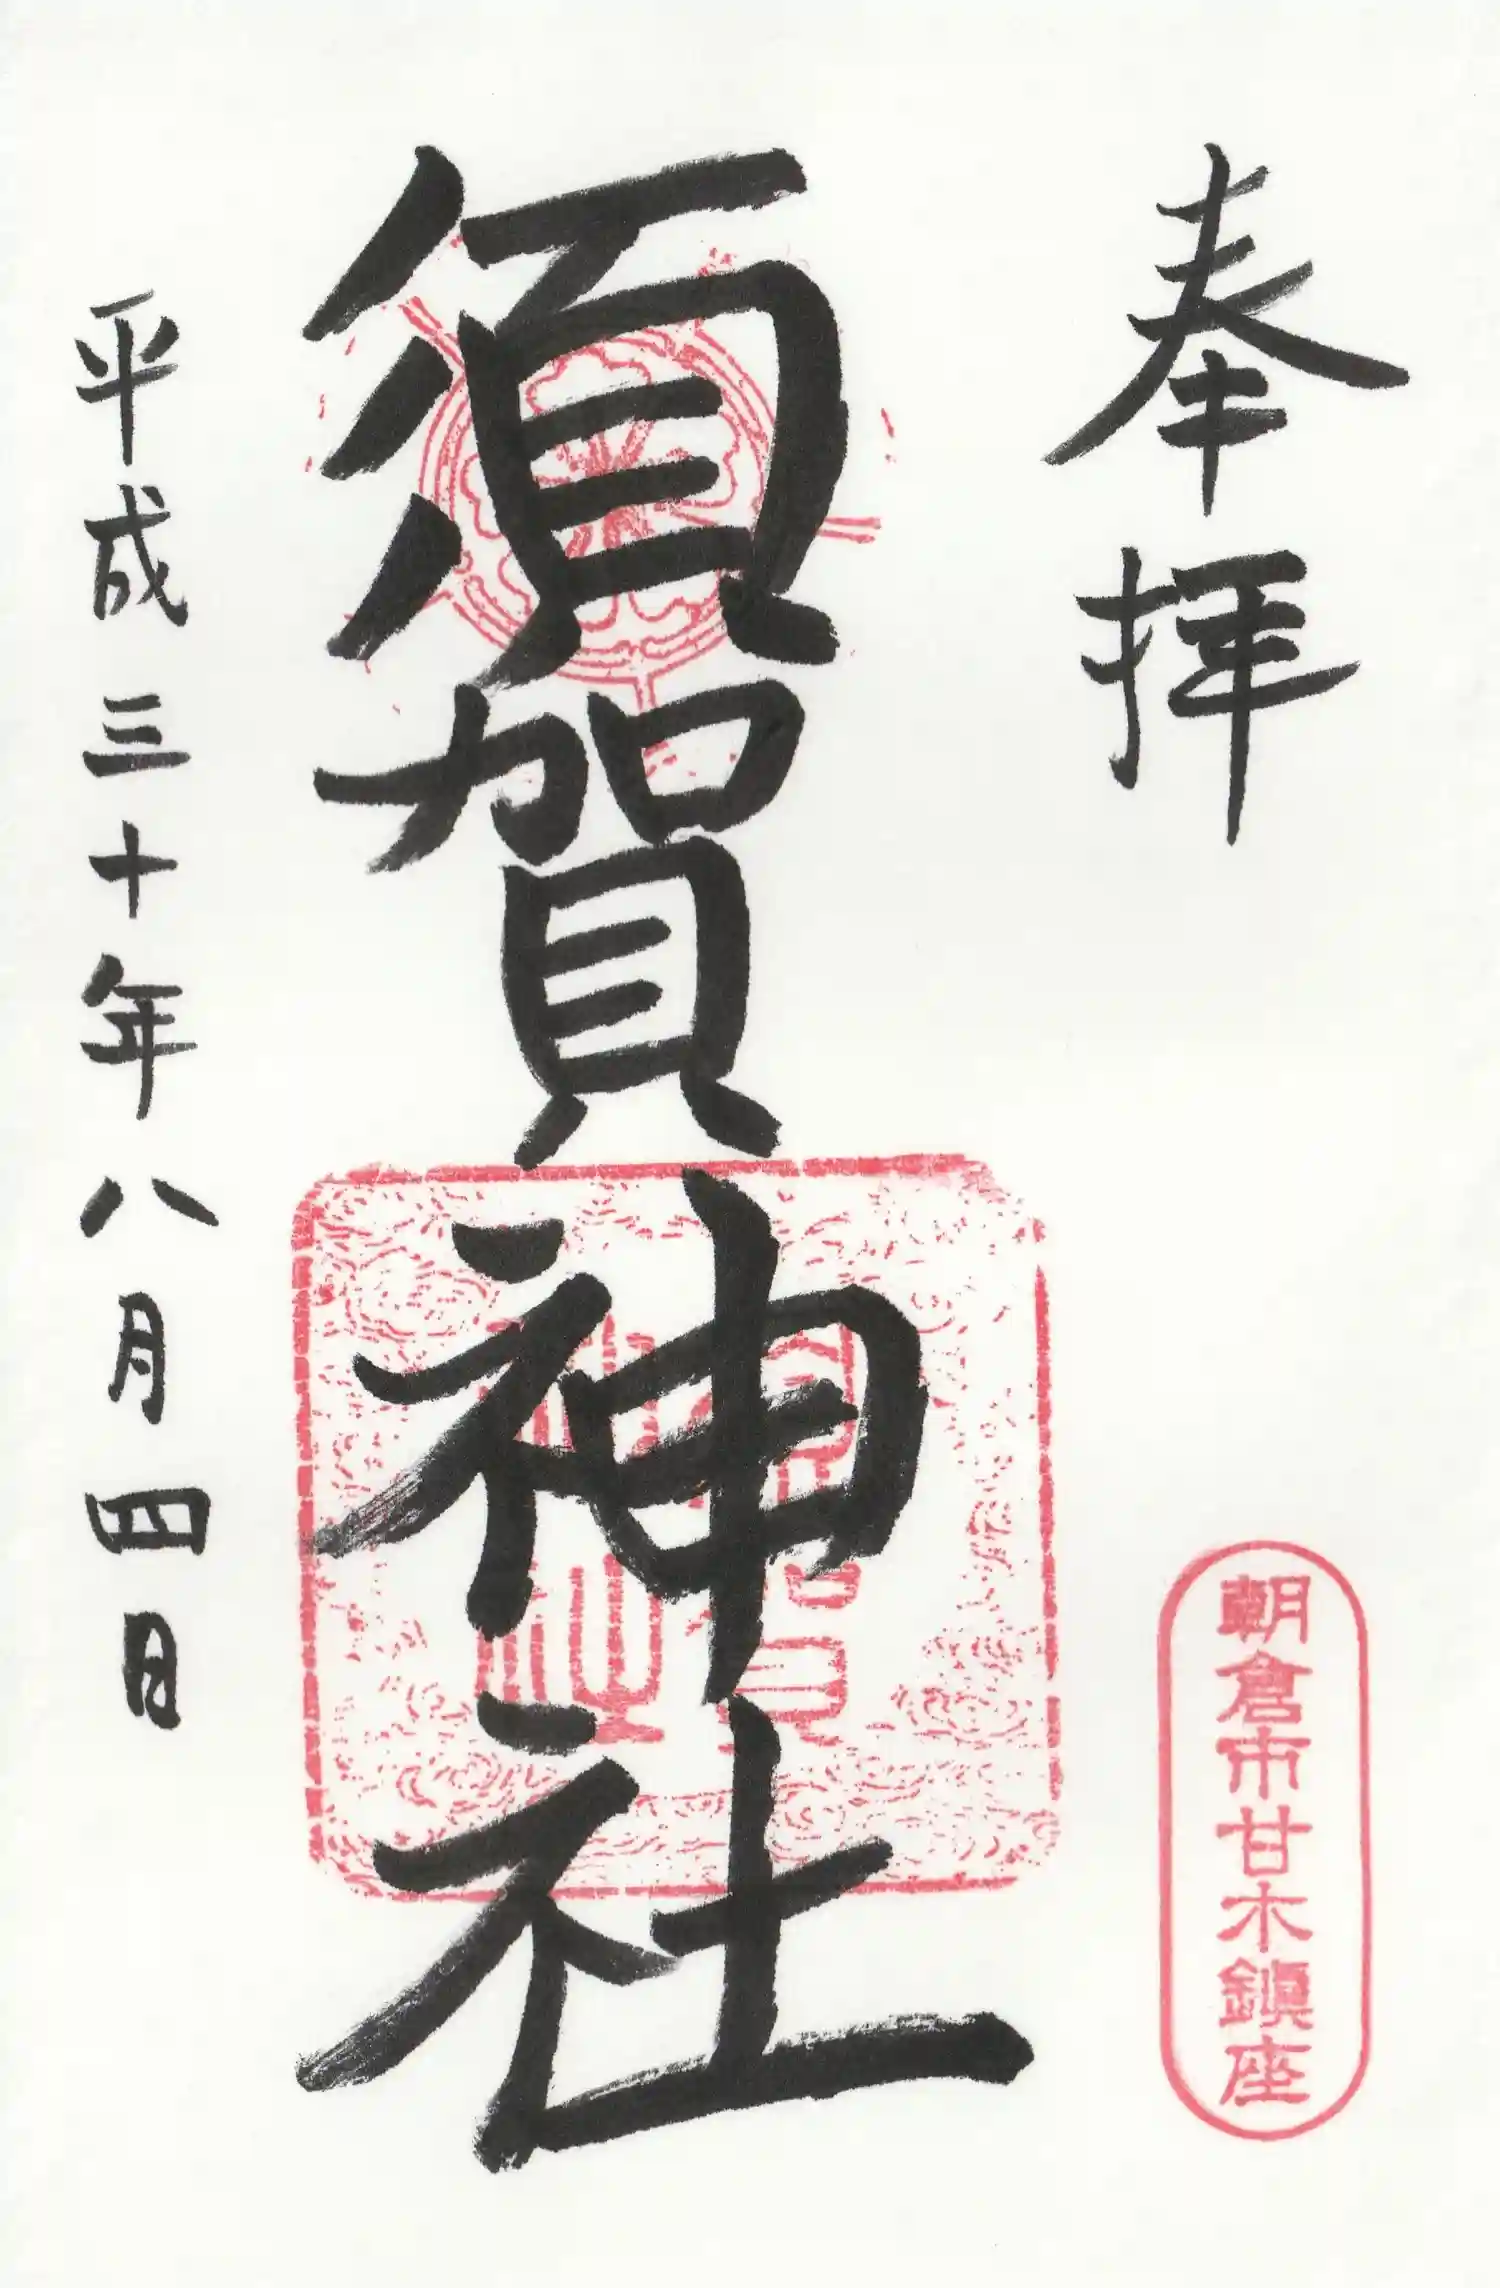 奉拝
朝倉市甘木鎮座
須賀神社
平成三十年八月四日